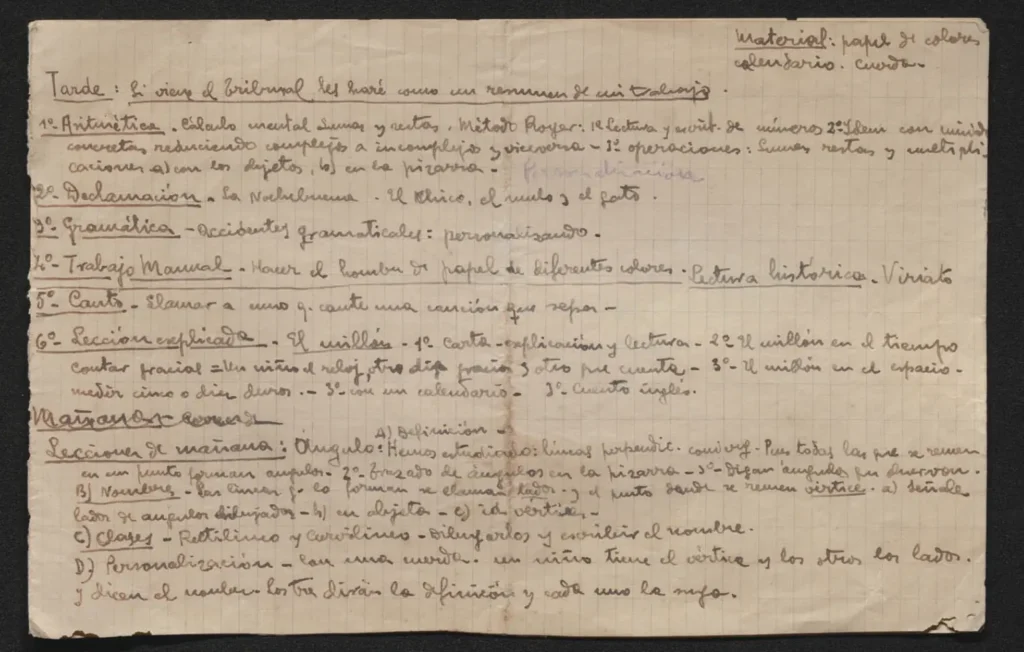 Material: papel de colores
calendario. Cuerda.
Tarde: Si viene el Tribunal les haré como un resumen de mi trabajo.
1º- Aritmética. Cálculo mental sumas y restas. Método Proyer: 1º Lectura y escrit. de números 2º Idem con
concretas reduciendo complejos a incomplejos y viceversa - 3º operaciones: Sumas restas y multipli-
caciones a) con los objetos, b) en la pizarra - Personalización
2º- Declamación. La Nochebuena. El Chico, el mulo y el gato.
3º- Gramática - Accidentes gramaticales: personalizando.
4º- Trabajo Manual - Hacer el hombre de papel de diferentes colores. Lectura histórica. Viriato
5º- Canto - Llamar a uno q. cante una canción que sepa -
6º- Lección explicada - El millón - 1º Carta - explicación y lectura - 2º El millón en el tiempo
contar gracias = Un niño el reloj, otro diga gracias y otro que cuenta - 3º- El millón en el espacio -
medir cinco o diez duros. - 3º- con un calendario - 3º Cuento inglés.
Mañana
Lecciones de mañana: Angulo: A) Definición - Hemos estudiado: líneas perpendic. converg. Pues todas las que se reunen
en un punto forman angulos - 2º- trazado de ángulos en la pizarra - 3º- Digan angulos que observan.
B) Nombres - Las lineas q. lo forman se llaman lados. y el punto donde se reunen vértice. a) Señale
lados de angulos dibujados - b) en objeto - c) id vértice. -
C) Clases - Rectilineo y curvilineo - Dibujarlos y escribir el nombre.
D) Personalización - Con una cuerda. un niño tiene el vértice y los otros los lados.
y dicen el nombre. Los tres dirán la definición y cada uno la suya.